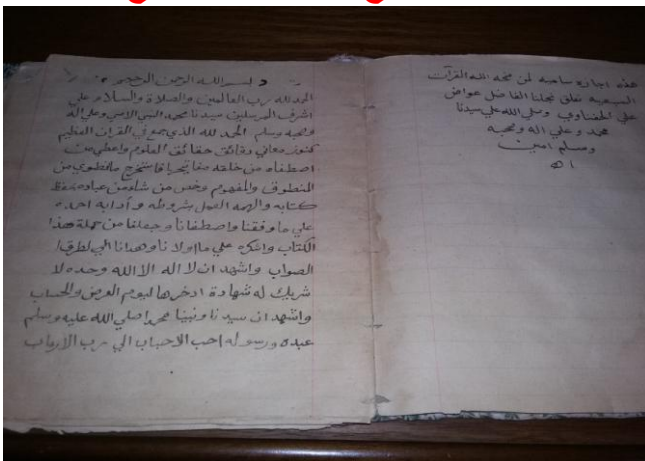 هذه اجازة سامية لمن منحه الله القرآت
السبعية تعلق نجلنا الفاضل عواض
علي الحفناوي وصلي الله علي سيدنا
محمد وعلي اله وصحبه
وسلم امين
اه
بسم الله الرحمن الرحيم
الحمد لله رب العالمين والصلاة والسلام علي
اشرف المرسلين سيدنا محمد النبي الامي وعلي اله
وصحبه وسلم الحمد لله الذي جمع في القران العظيم
كنوز معاني دقائق حقائق العلوم واعطي من
اصطفاه من خلقه مفاتيحها فاستخرج ما نطوي من
المنطوق والمفهوم وخص من شاء من عباده بحفظ
كتابه والهمه العمل بشروطه وآدابه احمده
علي ما وفقنا واصطفانا وجعلنا من حملة هذا
الكتاب واشكره علي ما اولانا وهدانا الي طرق
الصواب واشهد ان لا اله الا الله وحده لا
شريك له شهادة ادخرها ليوم العرض والحساب
واشهد ان سيدنا ونبينا محمدا صلي الله عليه وسلم
عبده ورسوله احب الاحباب الي رب الارباب